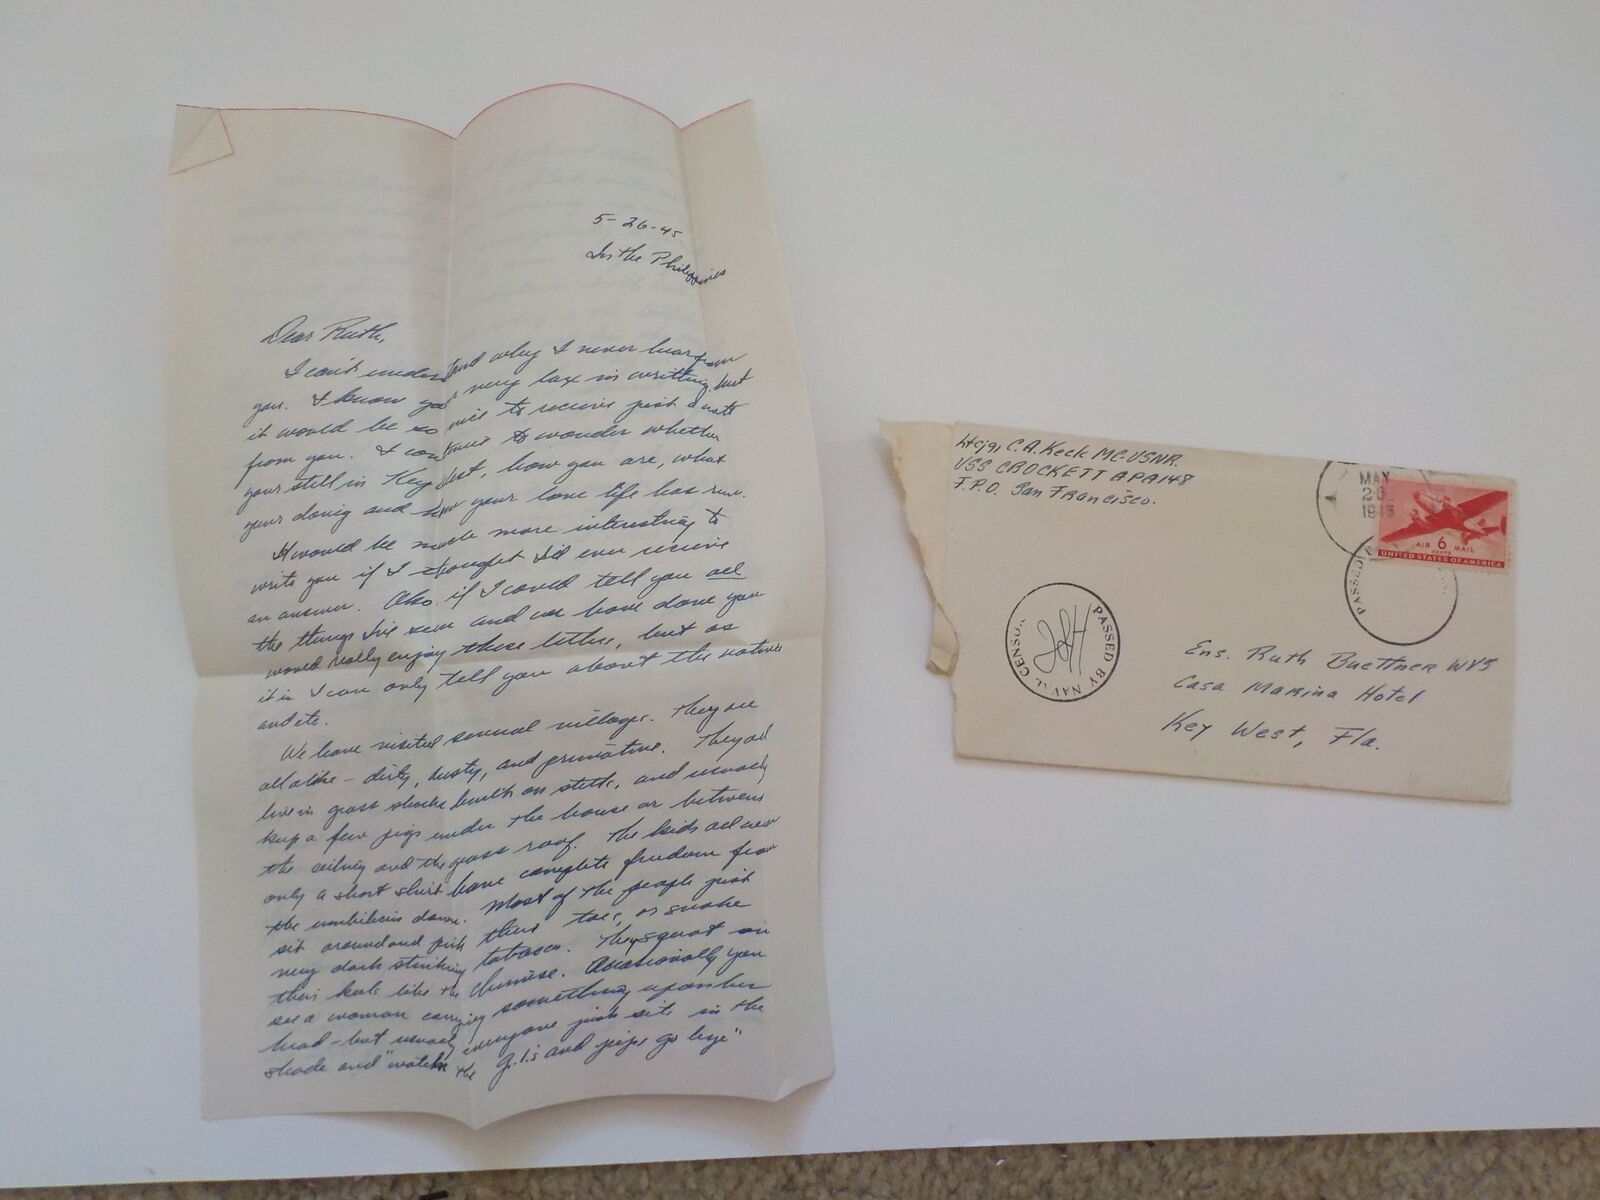 5-26-45
In the Philippines
Dear Ruth,
I can't understand why I never hear from
you. I know you very lax in writting, but
it would be so nice to receive just a note
from you. I continue to wonder whether
your still in Key West, how you are, what
your doing and how your love life has run.
It would be much more interesting to
write you if I thought I'd ever receive
an answer. Also if I could tell you all
the things I've seen and we have done you
would really enjoy these letters, but as
it is I can only tell you about the natives
and etc.
We have visited several villages. They are
all alike - dirty, dusty, and primative. They all
live in grass shacks built on stilts, and usually
keep a few pigs under the house or between
the ceiling and the grass roof. The kids all wear
only a short shirt have complete freedom from
the umbilicus down. Most of the people just
sit around and pick their toes, or smoke
very dark stinking tobacco. They squat on
their heels like the Chinese. Occasionally you
see a woman carrying something upon her
head - but usually everyone just sits in the
shade and "watch the G.I.'s and jeeps go bye"
Ltcjg, C.A. Keck MC-USNR.
USS CROCKETT APA148
F.P.O. San Francisco.
MAY
26
1945
AIR 6 MAIL
CENTS
UNITED STATES OF AMERICA
PASSED
PASSED BY NAVAL CENSOR
Ens. Ruth Buettner WVS
Casa Marina Hotel
Key West, Fla.